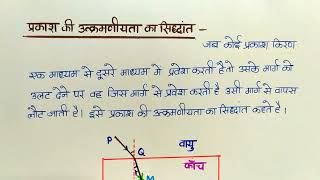 प्रकाश की उत्क्रमणीयता का सिद्धांत -
जब कोई प्रकाश किरण
एक माध्यम से दूसरे माध्यम में प्रवेश करती है तो उसके मार्ग को
उलट देने पर वह जिस मार्ग से प्रवेश करती है उसी मार्ग से वापस
लौट जाती है। इसे प्रकाश की उत्क्रमणीयता का सिद्धांत कहते है।
P
Q वायु
काँच
M